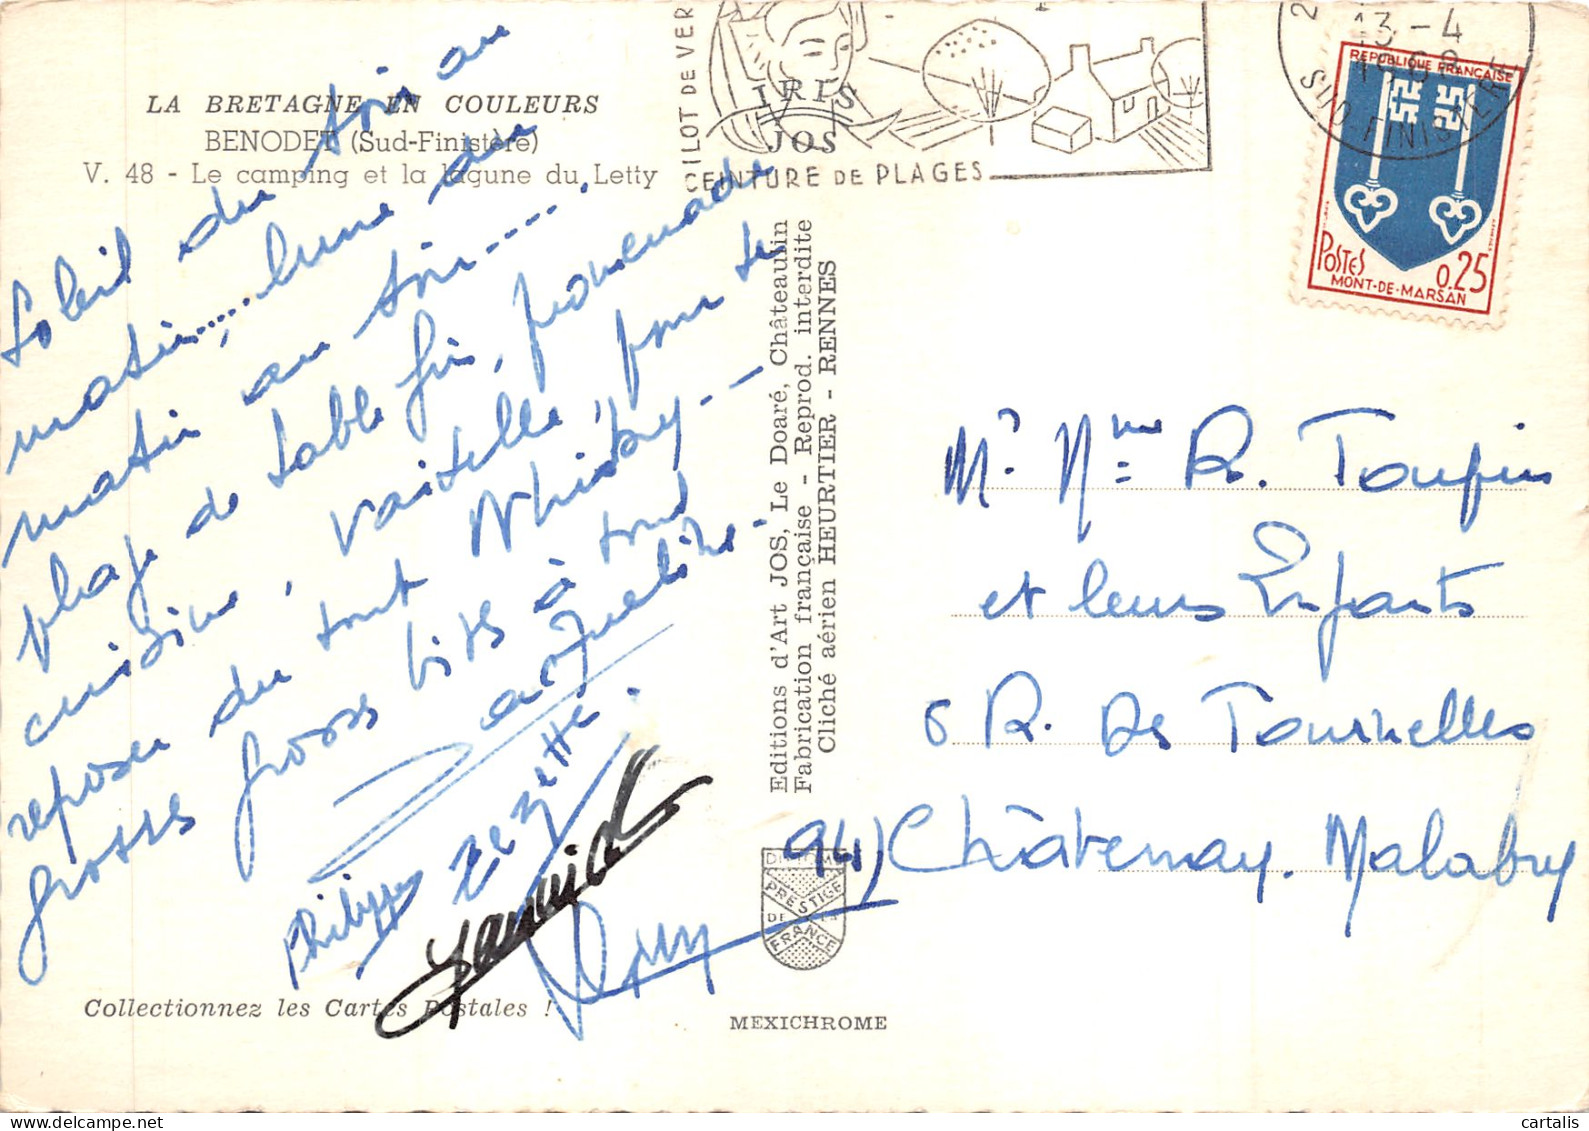 LA BRETAGNE EN COULEURS
BENODET (Sud-Finistère)
V. 48 - Le camping et la lagune du Letty
Soleil du soir au
matin..... lune du
matin au soir......
plage de table fin, promenade
cuisine, vaisselle, pour se
reposer du tout Whisky --
grosses grosses bises à tous
Jacqueline -
Philippe Zezette.
Yannick
ILOT DE VER
CEINTURE DE PLAGES
IRIS
JOS
13-4
SUD-FINISTERE
REPUBLIQUE FRANÇAISE
POSTES
0.25
MONT-DE-MARSAN
Editions d'Art JOS, Le Doaré, Châteaulin
Fabrication française - Reprod. interdite
Cliché aérien HEURTIER - RENNES
Mr Mme R. Toupin
et leurs Enfants
6 R. des Tournelles
94) Châtenay. Malabry
DIPLOME
PRESTIGE
DE LA
FRANCE
Collectionnez les Cartes Postales !
MEXICHROME
cartalis.com